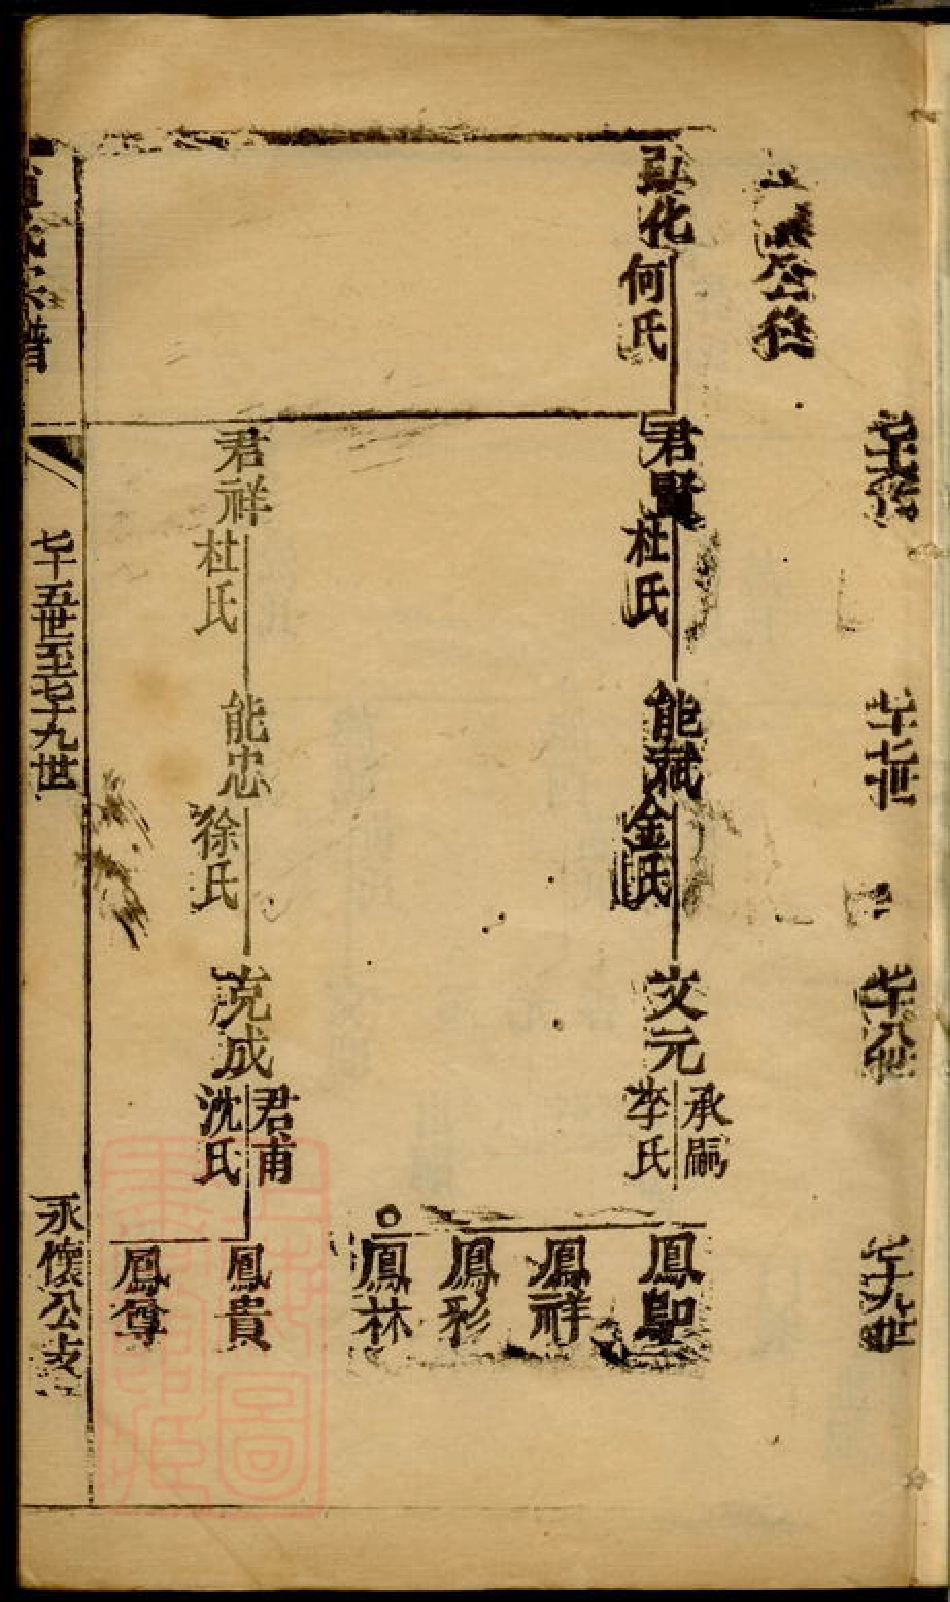 公後
七十六世
七十七世
七十八世
七十九世
弘化
何氏
君賢
杜氏
能斌
金氏
文元
承嗣
李氏
鳳聖
鳳祥
鳳彩
鳳林
君祥
杜氏
能忠
徐氏
克成
君甫
沈氏
鳳貴
鳳尊
氏宗譜
七十五世至七十九世
永懷公支